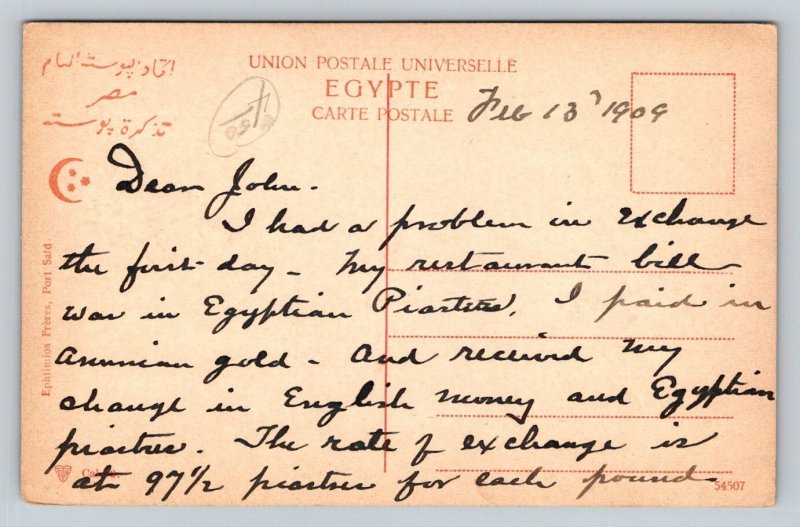 اتحاد پوسته العام
مصر
تذكرة پوسته
UNION POSTALE UNIVERSELLE
EGYPTE
CARTE POSTALE
Feb 13, 1909
Dear John-
I had a problem in exchange
the first day - My restaurant bill
was in Egyptian Piastres. I paid in
American gold - and received my
change in English money and Egyptian
piastres. The rate of exchange is
at 97 1/2 piastres for each pound.
Ephtimios Frères, Port Said
54507